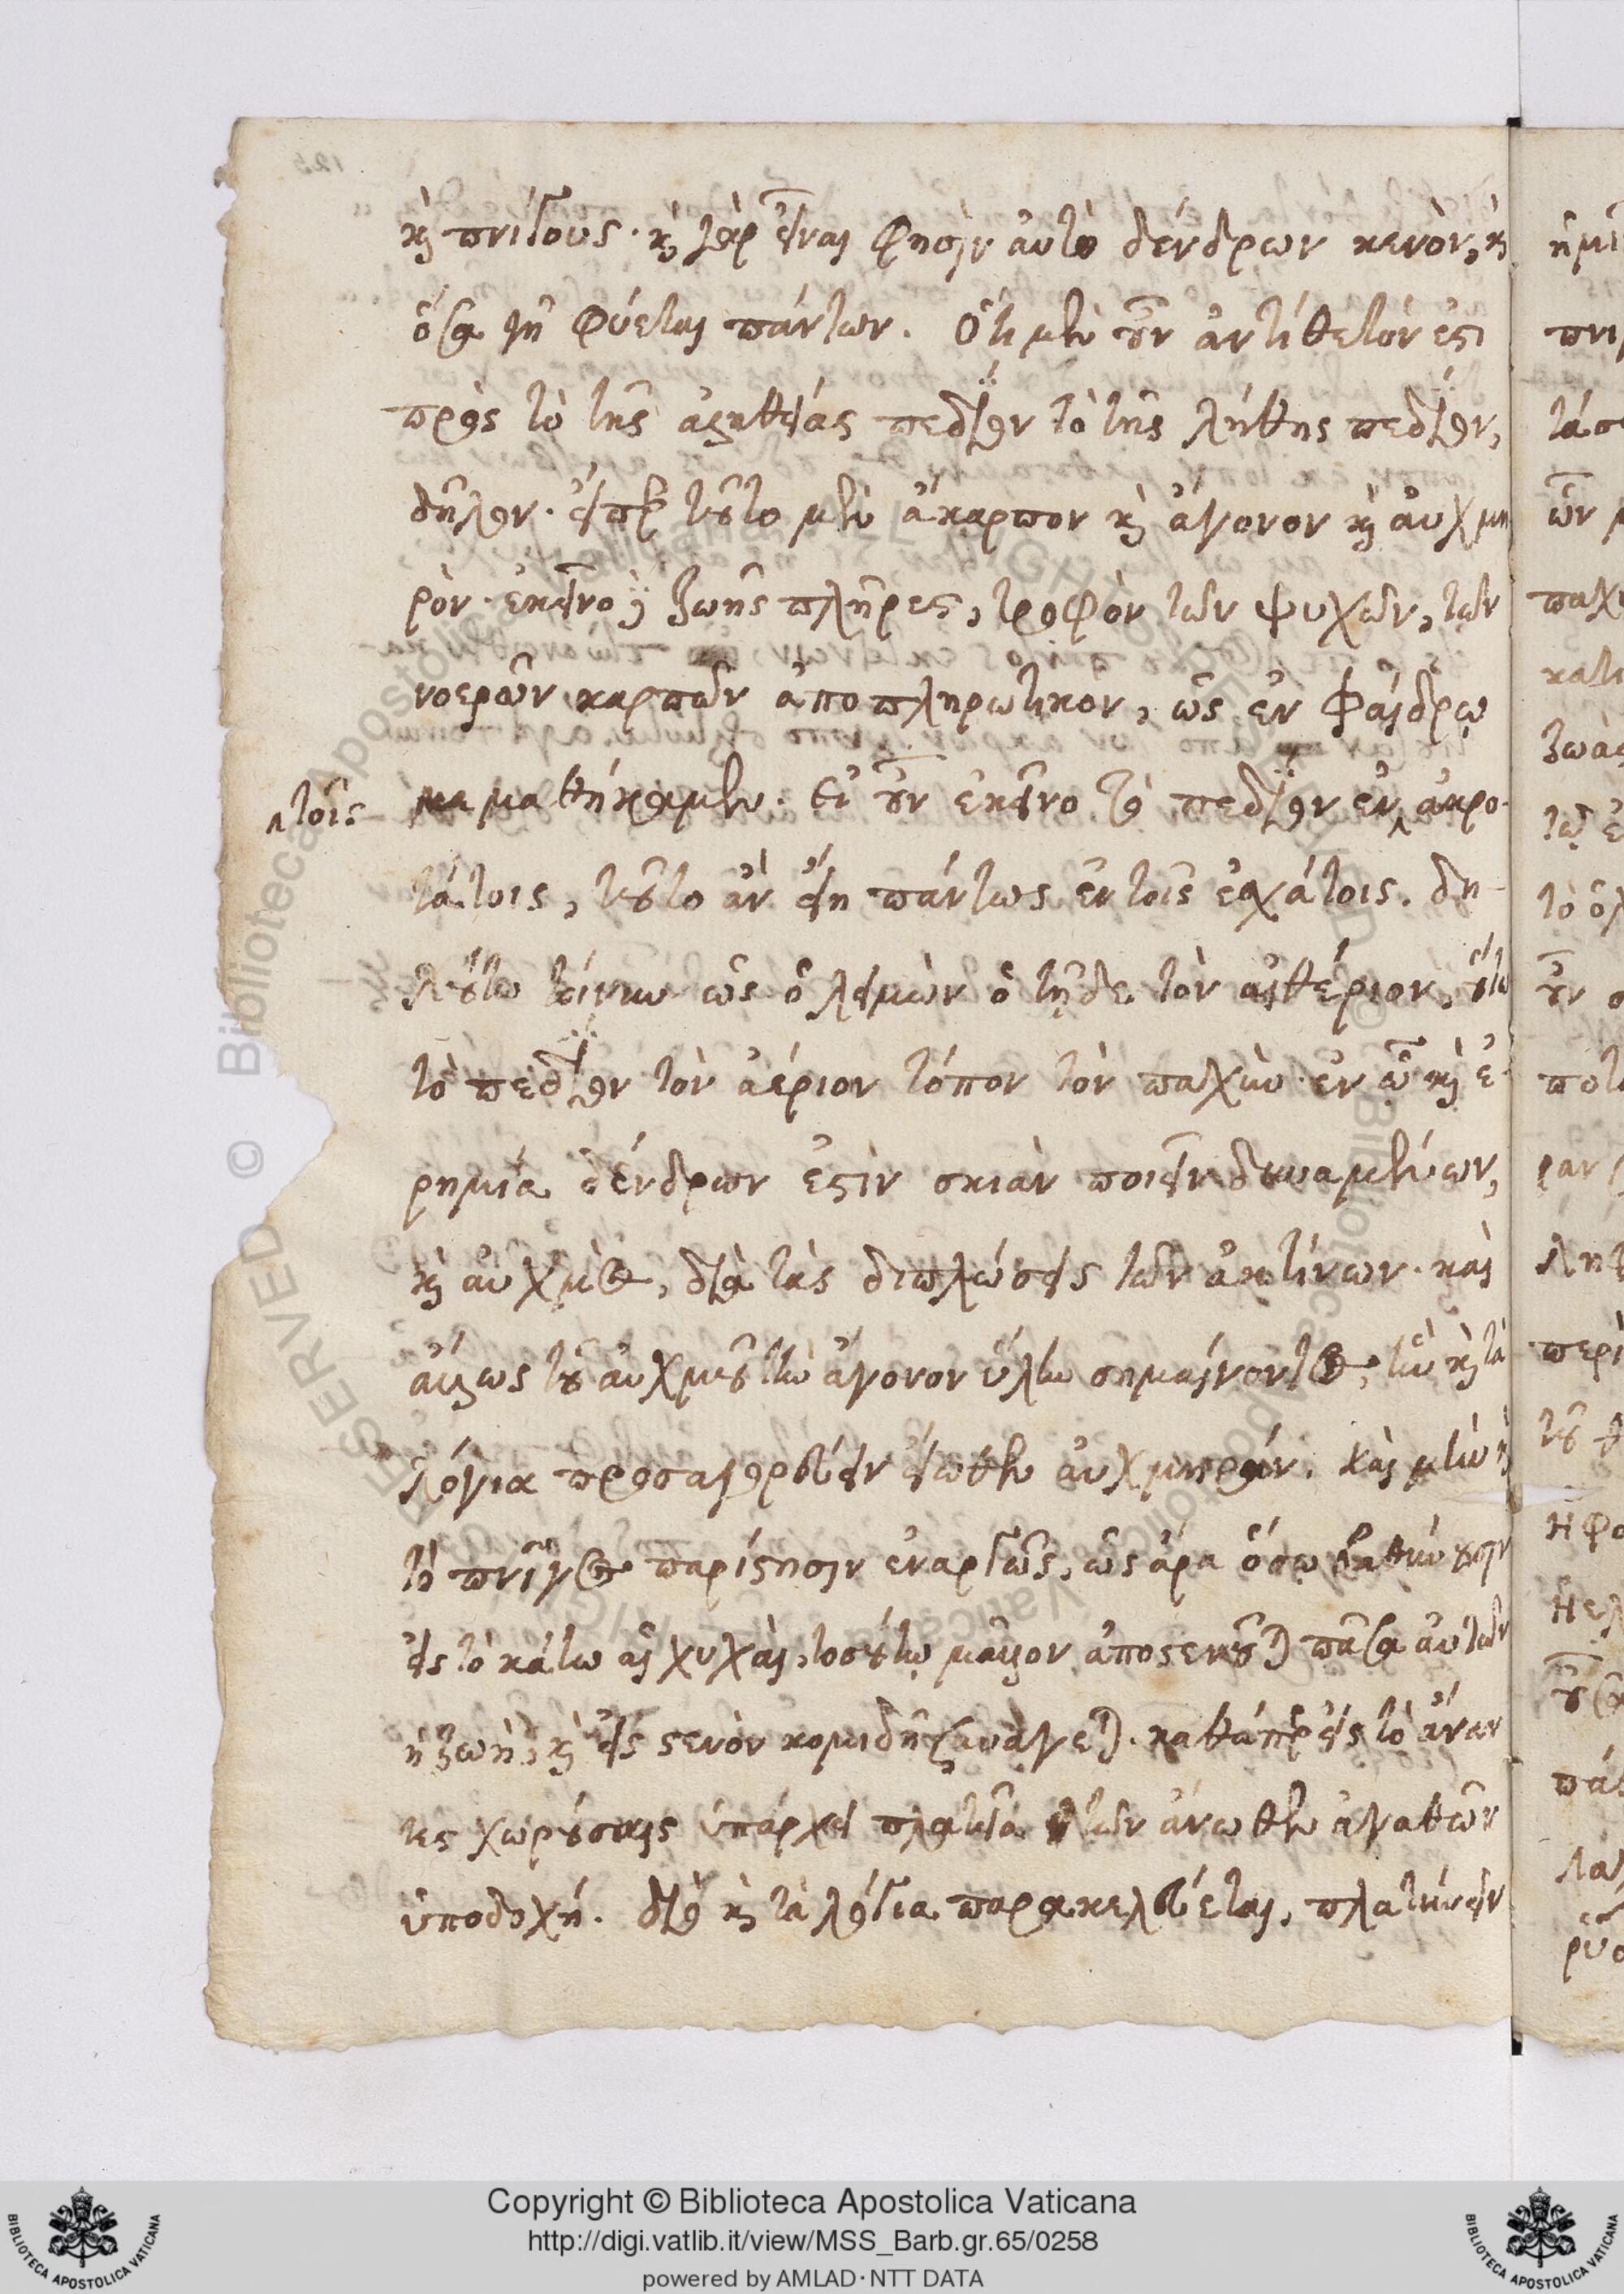 καὶ πνίγους. καὶ γὰρ εἶναι φησὶν αὐτὸ δένδρων κενὸν, καὶ
ὅσα γῆ φύεται πάντων. Ὅτι μὲν οὖν ἀντίθετόν ἐστι
πρὸς τὸ τῆς ἀληθείας πεδίον τὸ τῆς λήθης πεδίον,
δῆλον. εἴπερ τοῦτο μὲν ἄκαρπον καὶ ἄγονον καὶ αὐχμη
ρὸν. ἐκεῖνο δὲ ζωῆς πλῆρες, τροφὸν τῶν ψυχῶν, τῶν
νοερῶν καρπῶν ἀποπληρωτικὸν, ὡς ἐν Φαίδρῳ
μεμαθήκαμεν. εἰ οὖν ἐκεῖνο τὸ πεδίον ἐν ἀκρο-
τοῖς
τάτοις, τοῦτο ἂν εἴη πάντως ἐν τοῖς ἐσχάτοις. δη-
λούτω τοίνυν ὡς ὁ λειμὼν ὁ τῇδε τὸν αἰθέριον, οὕτω
τὸ πεδίον τὸν ἀέριον τόπον τὸν παχὺν. ἐν ᾧ καὶ ἐ-
ρημία δένδρων ἐστὶν σκιὰν ποιεῖν δυναμένων,
καὶ αὐχμὸς, διὰ τὰς διπλώσεις τῶν ἀκτίνων. καὶ
ἄλλως τοῦ αὐχμοῦ τὴν ἄγονον ὕλην σημαίνοντος, ἣν καὶ τὰ
λόγια προσαγορεύειν εἴωθεν αὐχμηράν. καὶ μὴν καὶ
τὸ πνῖγος παρίστησιν ἐναργῶς, ὡς ἄρα ὅσῳ βαθύνουσιν
εἰς τὸ κάτω αἱ ψυχαὶ, τοσούτῳ μᾶλλον ἀποστενοῦται πᾶσα αὐτῶν
ἡ ζωὴ, καὶ εἰς στενὸν κομιδῆ συνάγεται. καθάπερ εἰς τὸ ἄναν
τες χωρούσαις ὑπάρχει πλατεῖα τῶν ἄνωθεν ἀγαθῶν
ὑποδοχή. διὸ καὶ τὰ λόγια παρακελεύεται, πλατύνειν